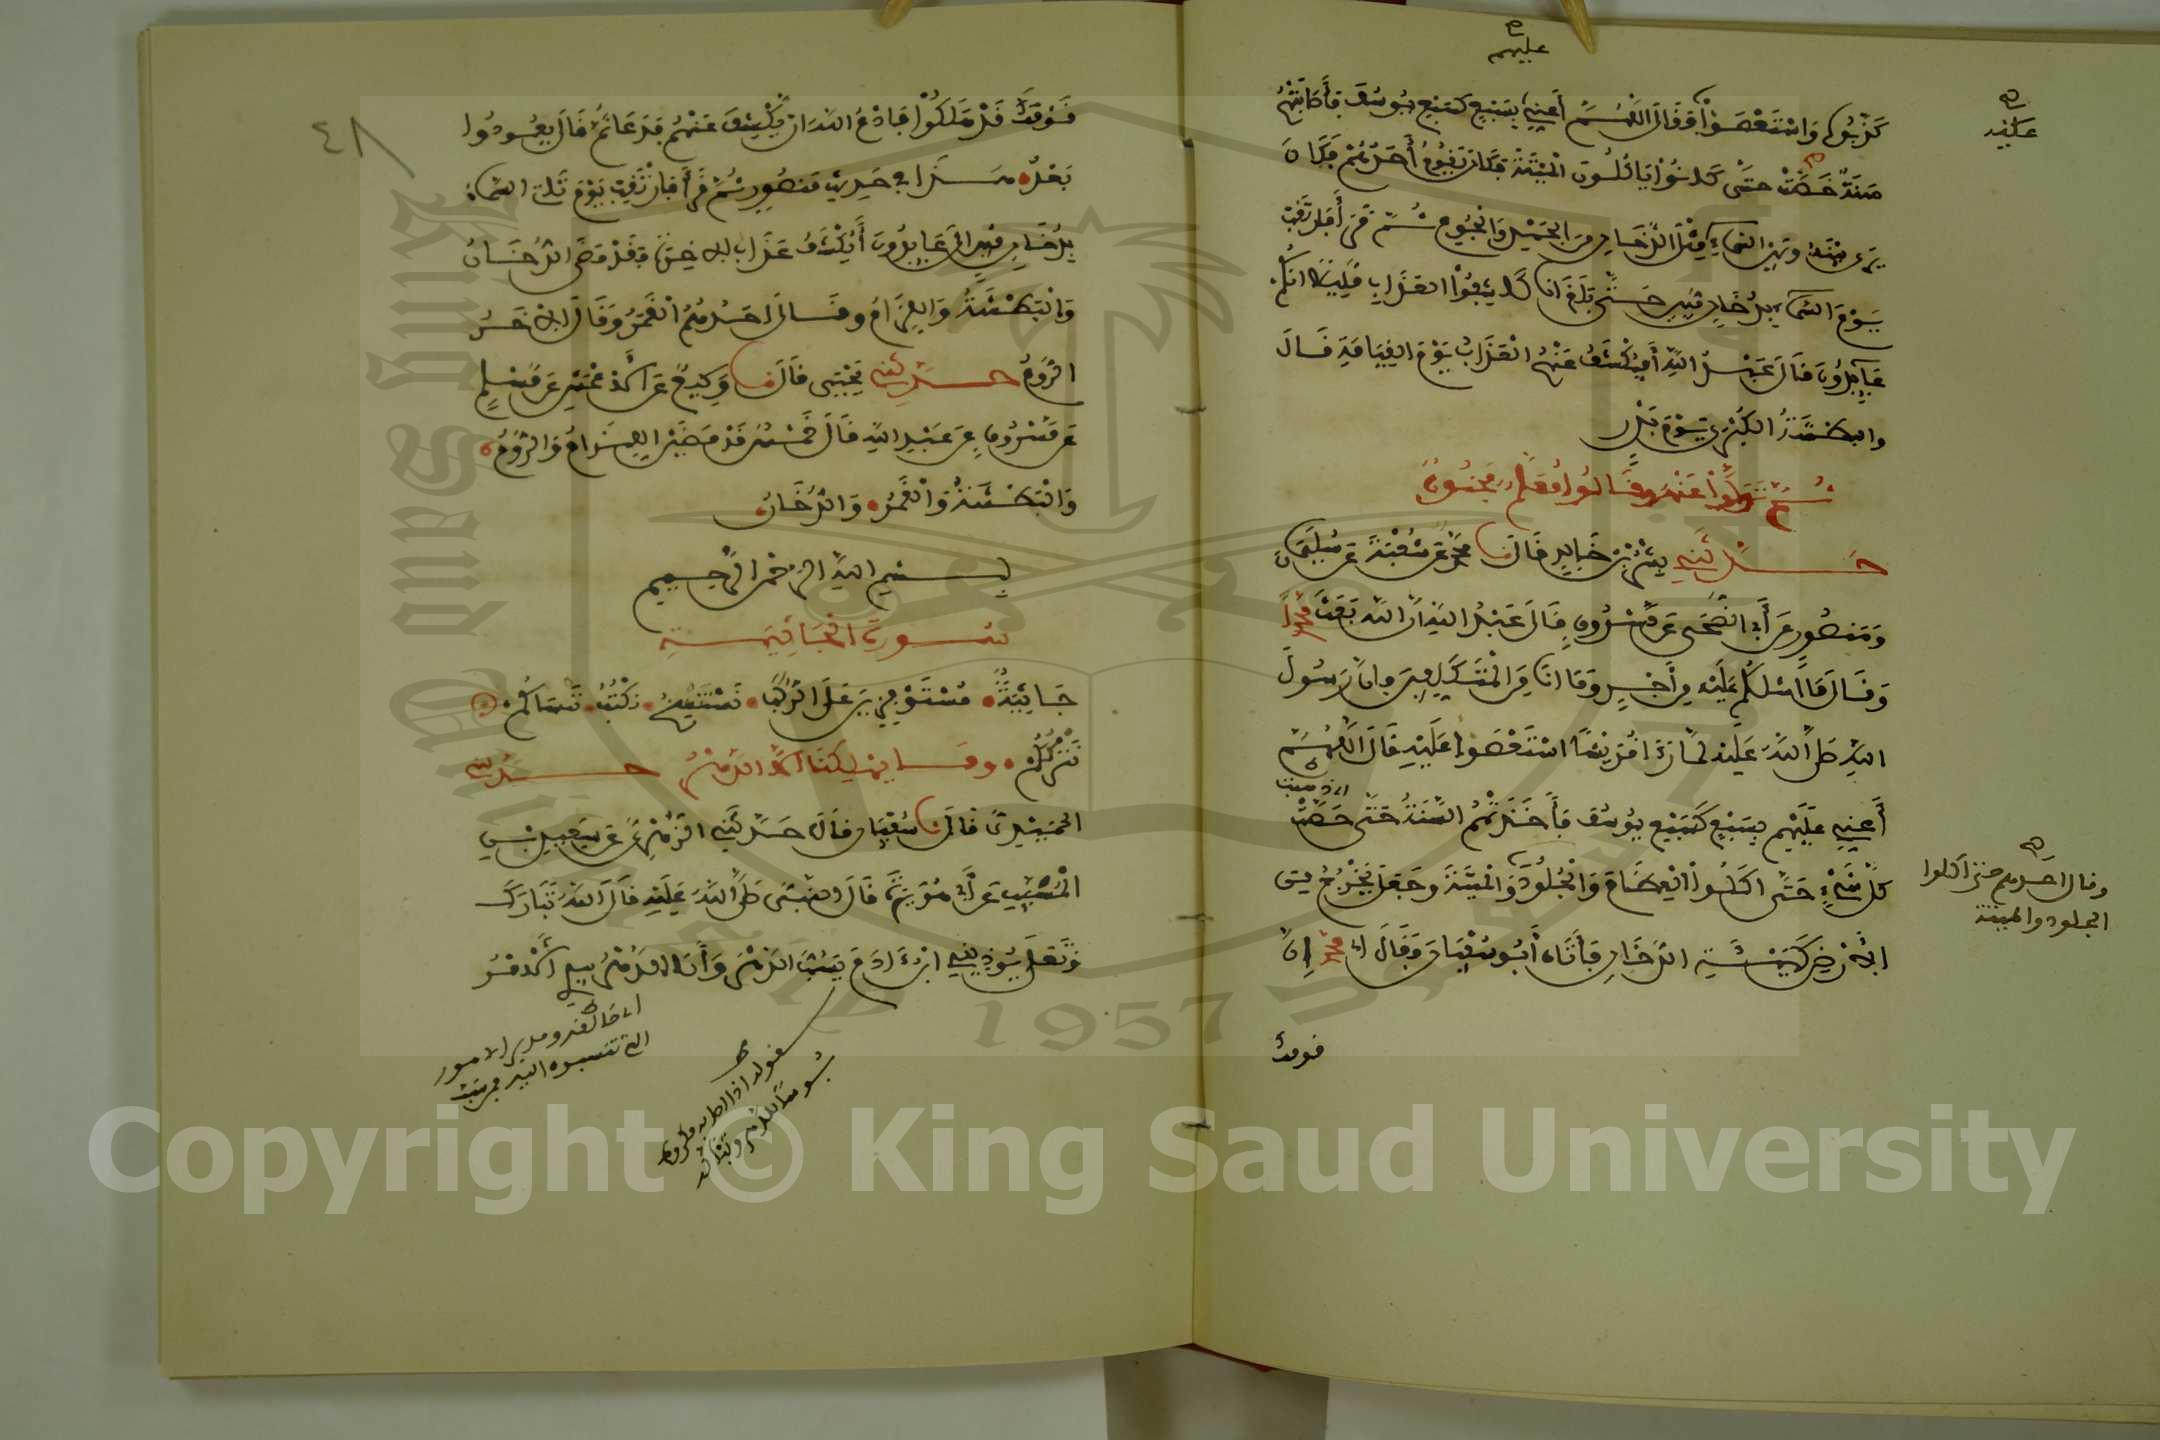 عليهم
كذبوه واستعصوا فقال اللهم أعني بسبع كسبع يوسف فأصابتهم
عليه
سنة حصت حتى كانوا ياكلون الميتة فكان يقوم أحدهم فكان
يرى بينه وبين السماء مثل الدخان من الجهد والجوع ثم قرأ فارتقب
يوم تاتي السماء بدخان مبين حتى بلغ انا كاشفوا العذاب قليلا انكم
عايدون قال عبد الله أفيكشف عنهم العذاب يوم القيامة قال
والبطشة الكبرى يوم بدر
ثم تولوا عنه وقالوا معلم مجنون
حدثني بشر بن خالد قال محمد عن شعبة عن سليمان
ومنصور عن أبي الضحى عن مسروق قال عبد الله ان الله بعث محمدا
وقال قل ما اسلكم عليه من أجر وما انا من المتكلفين فان رسول
الله صلى الله عليه لما رءا قريشا استعصوا عليه قال اللهم
أعني عليهم بسبع كسبع يوسف فأخذتهم السنة حتى حصت
كل شيء حتى اكلوا العظام والجلود والميتة وجعل يخرج من
وقال احدهم حتى اكلوا
الجلود والميتة
الأرض كهيئة الدخان فأتاه أبو سفيان فقال اي محمد ان
قومك
٤٨
قومك قد هلكوا فادع الله ان يكشف عنهم فدعا ثم قال يعودوا
بعد هذا في حديث منصور ثم قرأ فارتقب يوم تاتي السماء
بدخان مبين الى عايدون أيكشف عذاب الاخرة فقد مضى الدخان
والبطشة واللزام وقال احدهم القمر وقال الاخر
الروم حدثني يحيى قال وكيع عن الأعمش عن مسلم
عن مسروق عن عبد الله قال خمس قد مضين اللزام والروم
والبطشة والقمر والدخان
بسم الله الرحمن الرحيم
سورة الجاثية
جاثية مستوفزين على الركب نستنسخ نكتب ننساكم
نترككم وما يهلكنا الا الدهر حدثني
الحميدي قال سفيان قال حدثني الزهري عن سعيد بن
المسيب عن أبي هريرة قال النبي صلى الله عليه قال الله تبارك
وتعلى يوذيني ابن ءادم يسب الدهر وأنا الدهر بيدي الأمر
اي خالقه ومدبر الامور
التي تنسبوه اليه